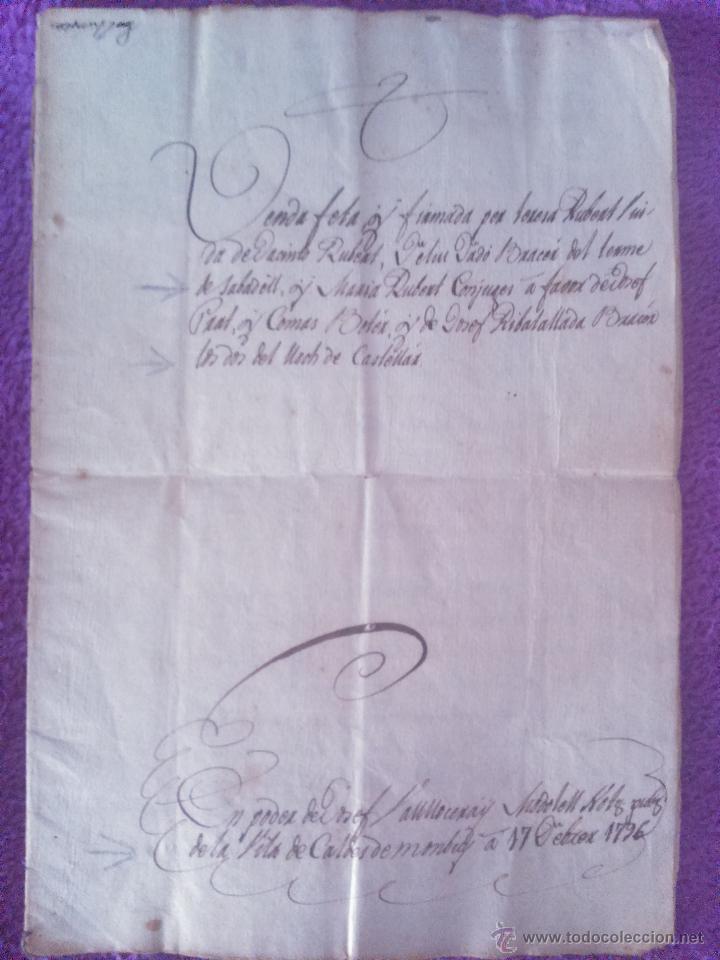 Venda feta y firmada por teresa Rubert Viu-
da de Jacinto Rubert, Feliu Dadó Bracer del terme
de Sabadell, y Maria Rubert Conjuges à favor de Josef
Prat, y Comas Boter, y de Josef Ribatallada Bracer
los dos del lloch de Castellar.
En poder de Josef y Madolell Notᵣ pubᶜ
de la Vila de Caldes de montbuy à 17 Febrer 1796
© www.todocoleccion.net